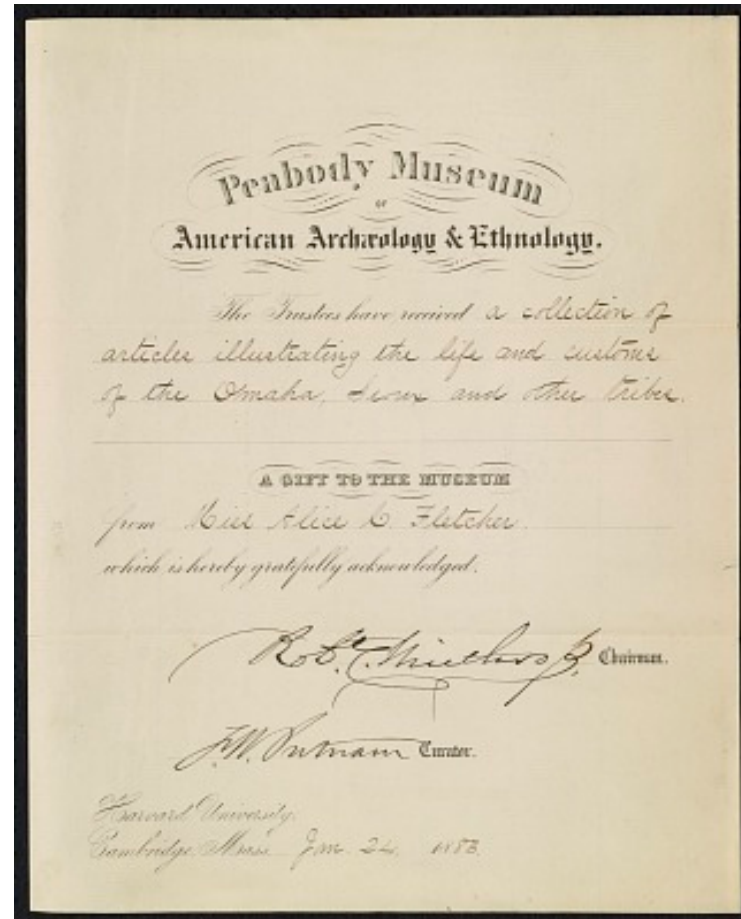 Peabody Museum
OF
American Archæology & Ethnology.
The Trustees have received a collection of
articles illustrating the life and customs
of the Omaha, Sioux and other tribes.
A GIFT TO THE MUSEUM
from Miss Alice C Fletcher
which is hereby gratefully acknowledged.
Robt. C. Winthrop Chairman.
F. W. Putnam Curator.
Harvard University.
Cambridge, Mass. Jan. 24. 1883.